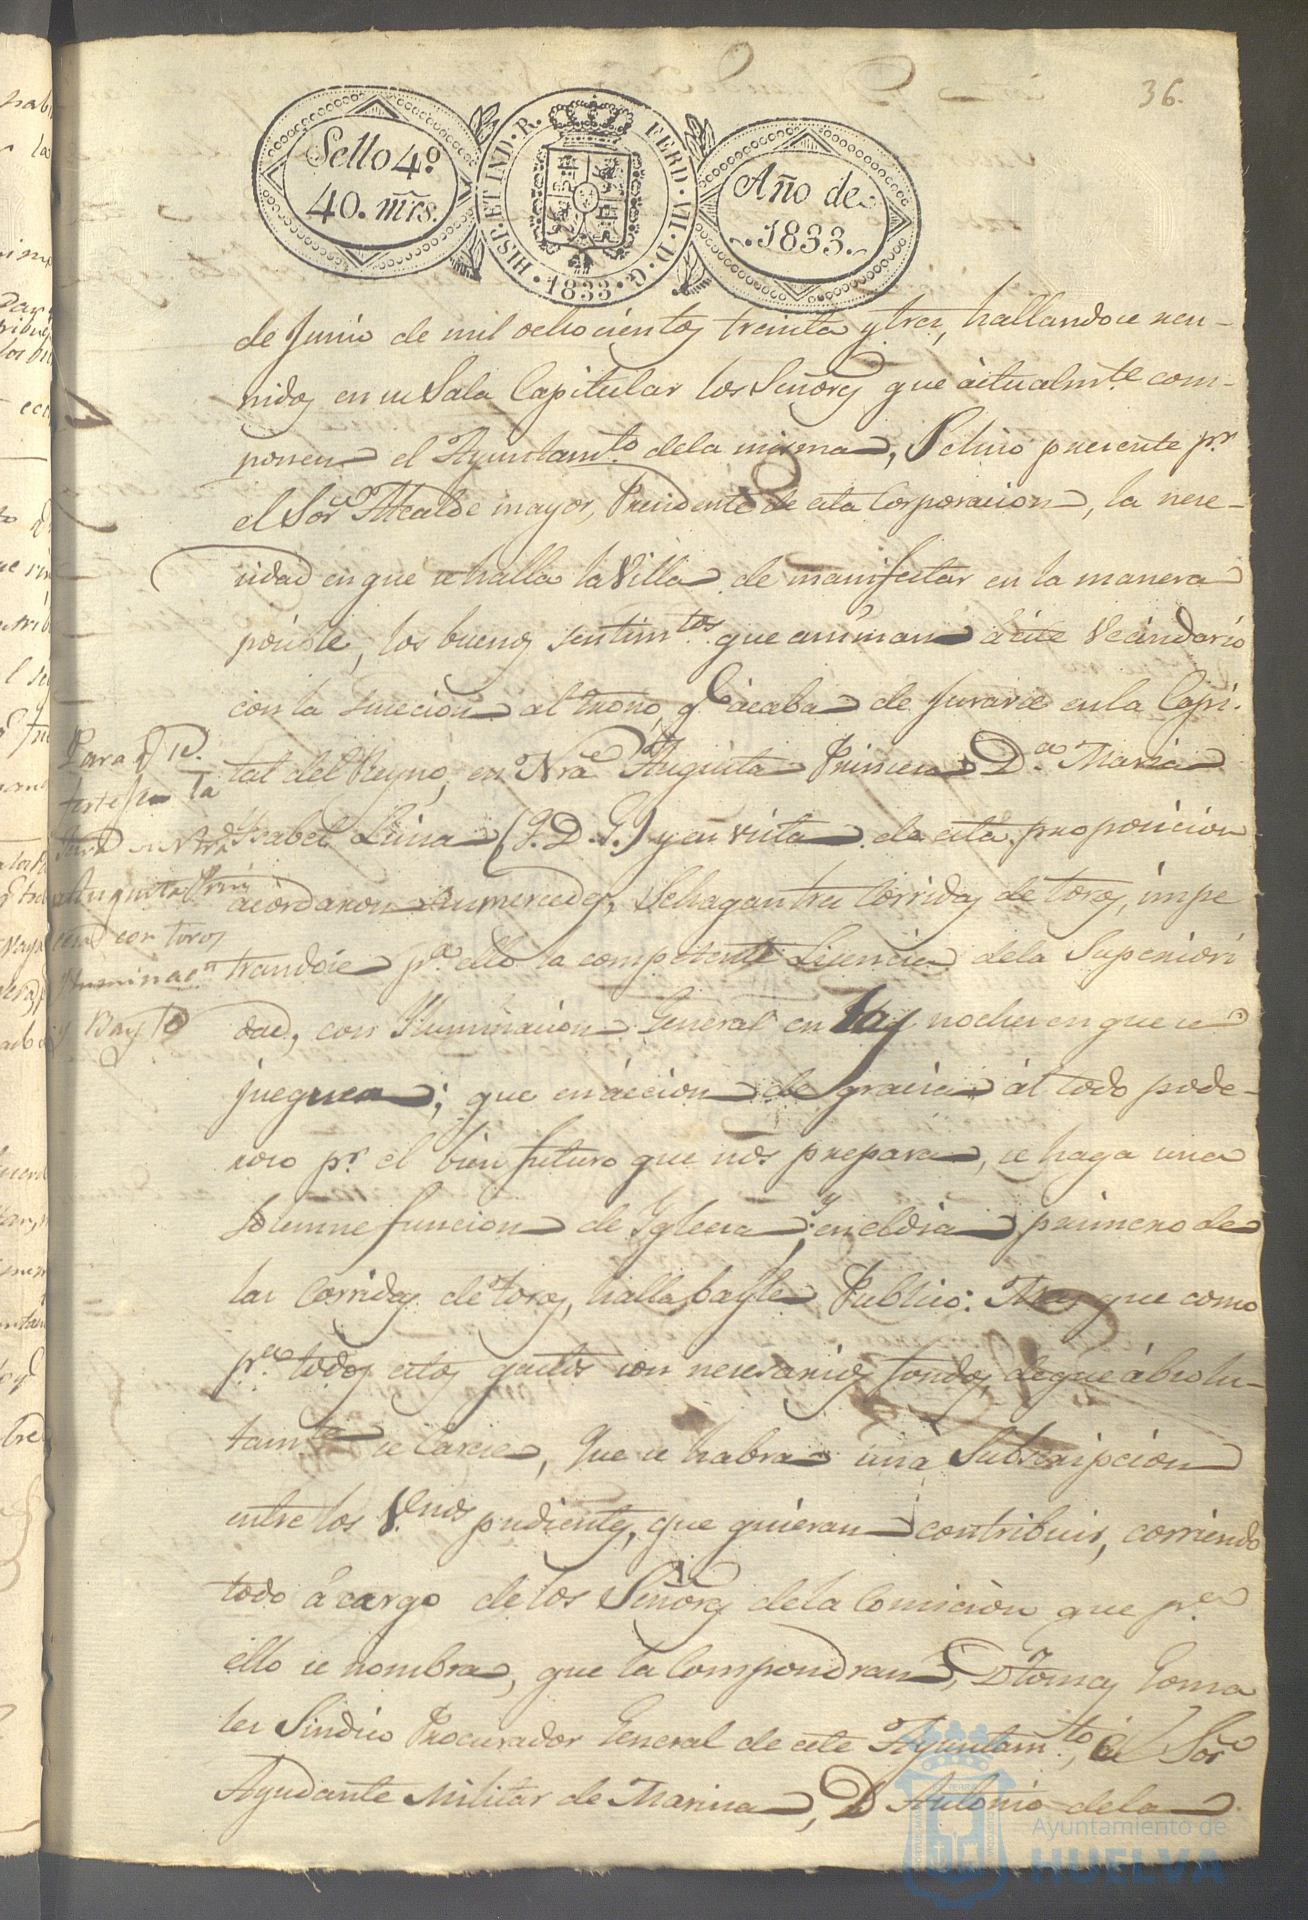 36.
Sello 4.º
40. mrs.
HISP. ET IND. R. FERD. VII. D. G. 1833.
Año de
1833.
de Junio de mil ochocientos treinta y tres, hallandose reu-
nidos en su Sala Capitular los Señores que áctualmte. com-
ponen el Ayuntamto. dela misma, Se hizo presente pr.
el Sor. Alcalde mayor, Presidente de esta Corporacion, la nece-
sidad en que se halla la Villa de manifestar en la manera
posible, los buenos sentimtos. que animan á este Vecindario
con la sucecion al trono, q. ácaba de Jurarse en la Capi-
tal del Reyno, en Nra. Augusta Princesa Da. Maria
Isabel Luisa (Q.D.G.) y en vista de esta proposicion
ácordaron sus mercedes, Se hagan tres Corridas de toros, impe
trandose pa. ello la competente Licencia dela Superiori
dad, con Iluminacion General en las noches en que se
jueguen; que en áccion de gracias ál todo pode-
roso pr. el bien futuro que nos prepara, se haga una
Solemne funcion de Yglecia, y en el dia primero de
las Corridas de toros, halla bayle Publico: Mas que como
pa. todos estos gastos son necesarios fondos, de que ábsolu-
tamte. se Carece, Que se habra una Subscripcion
entre los V.nos pudientes, que quieran contribuir, corriendo
todo á cargo de los Señores dela Comicion que pa.
ello se nombra, que la Compondran, D Tomas Gonza
les Sindico Procurador General de este Ayuntamto., el Sor.
Ayudante Militar de Marina, D Antonio de la
Para q. se
en la
Jura de Ntra
Augusta Prin
cesa con toros
Yluminacn.
y Bayle
Ayuntamiento de
HUELVA